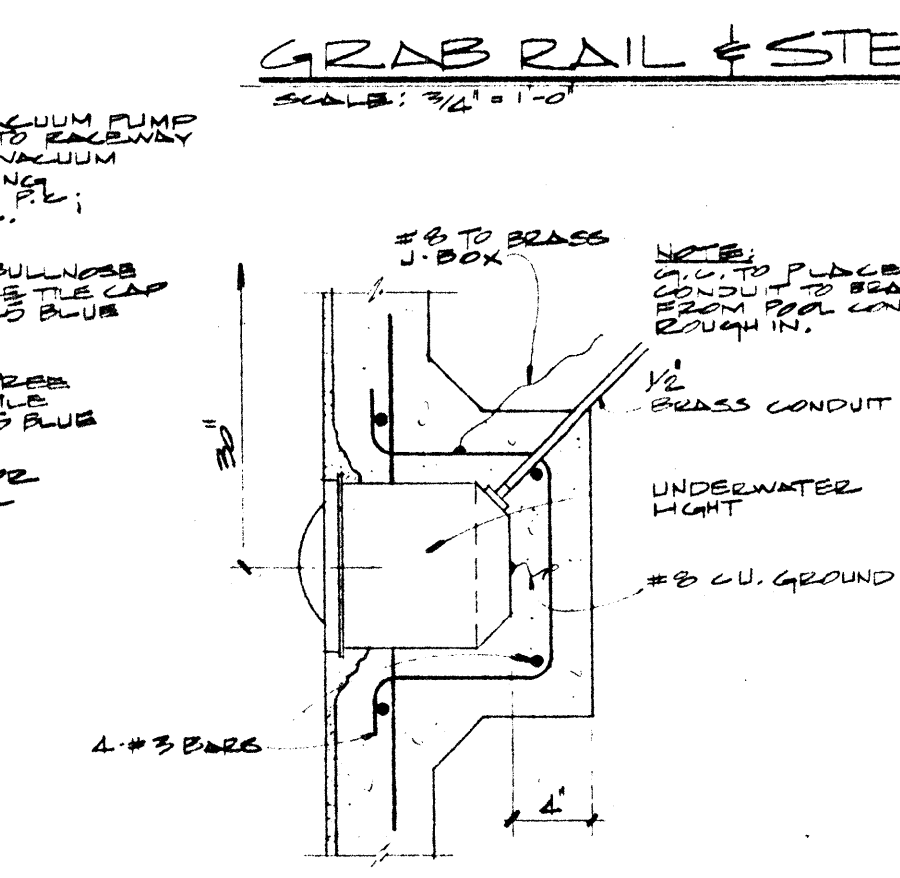 GRAB RAIL & STE
SCALE: 3/4" = 1'-0"
ACUUM PUMP
TO RACEWAY
VACUUM
NG
P.C;
BULLNOSE
E TILE CAP
BLUE
REE
ILE
BLUE
30"
#8 TO BRASS
J-BOX
NOTE:
G.C. TO PLACE
CONDUIT TO BRA
FROM POOL CON
ROUGH IN.
1/2"
BRASS CONDUIT
UNDERWATER
LIGHT
#8 CU. GROUND
4-#3 BARS
4"